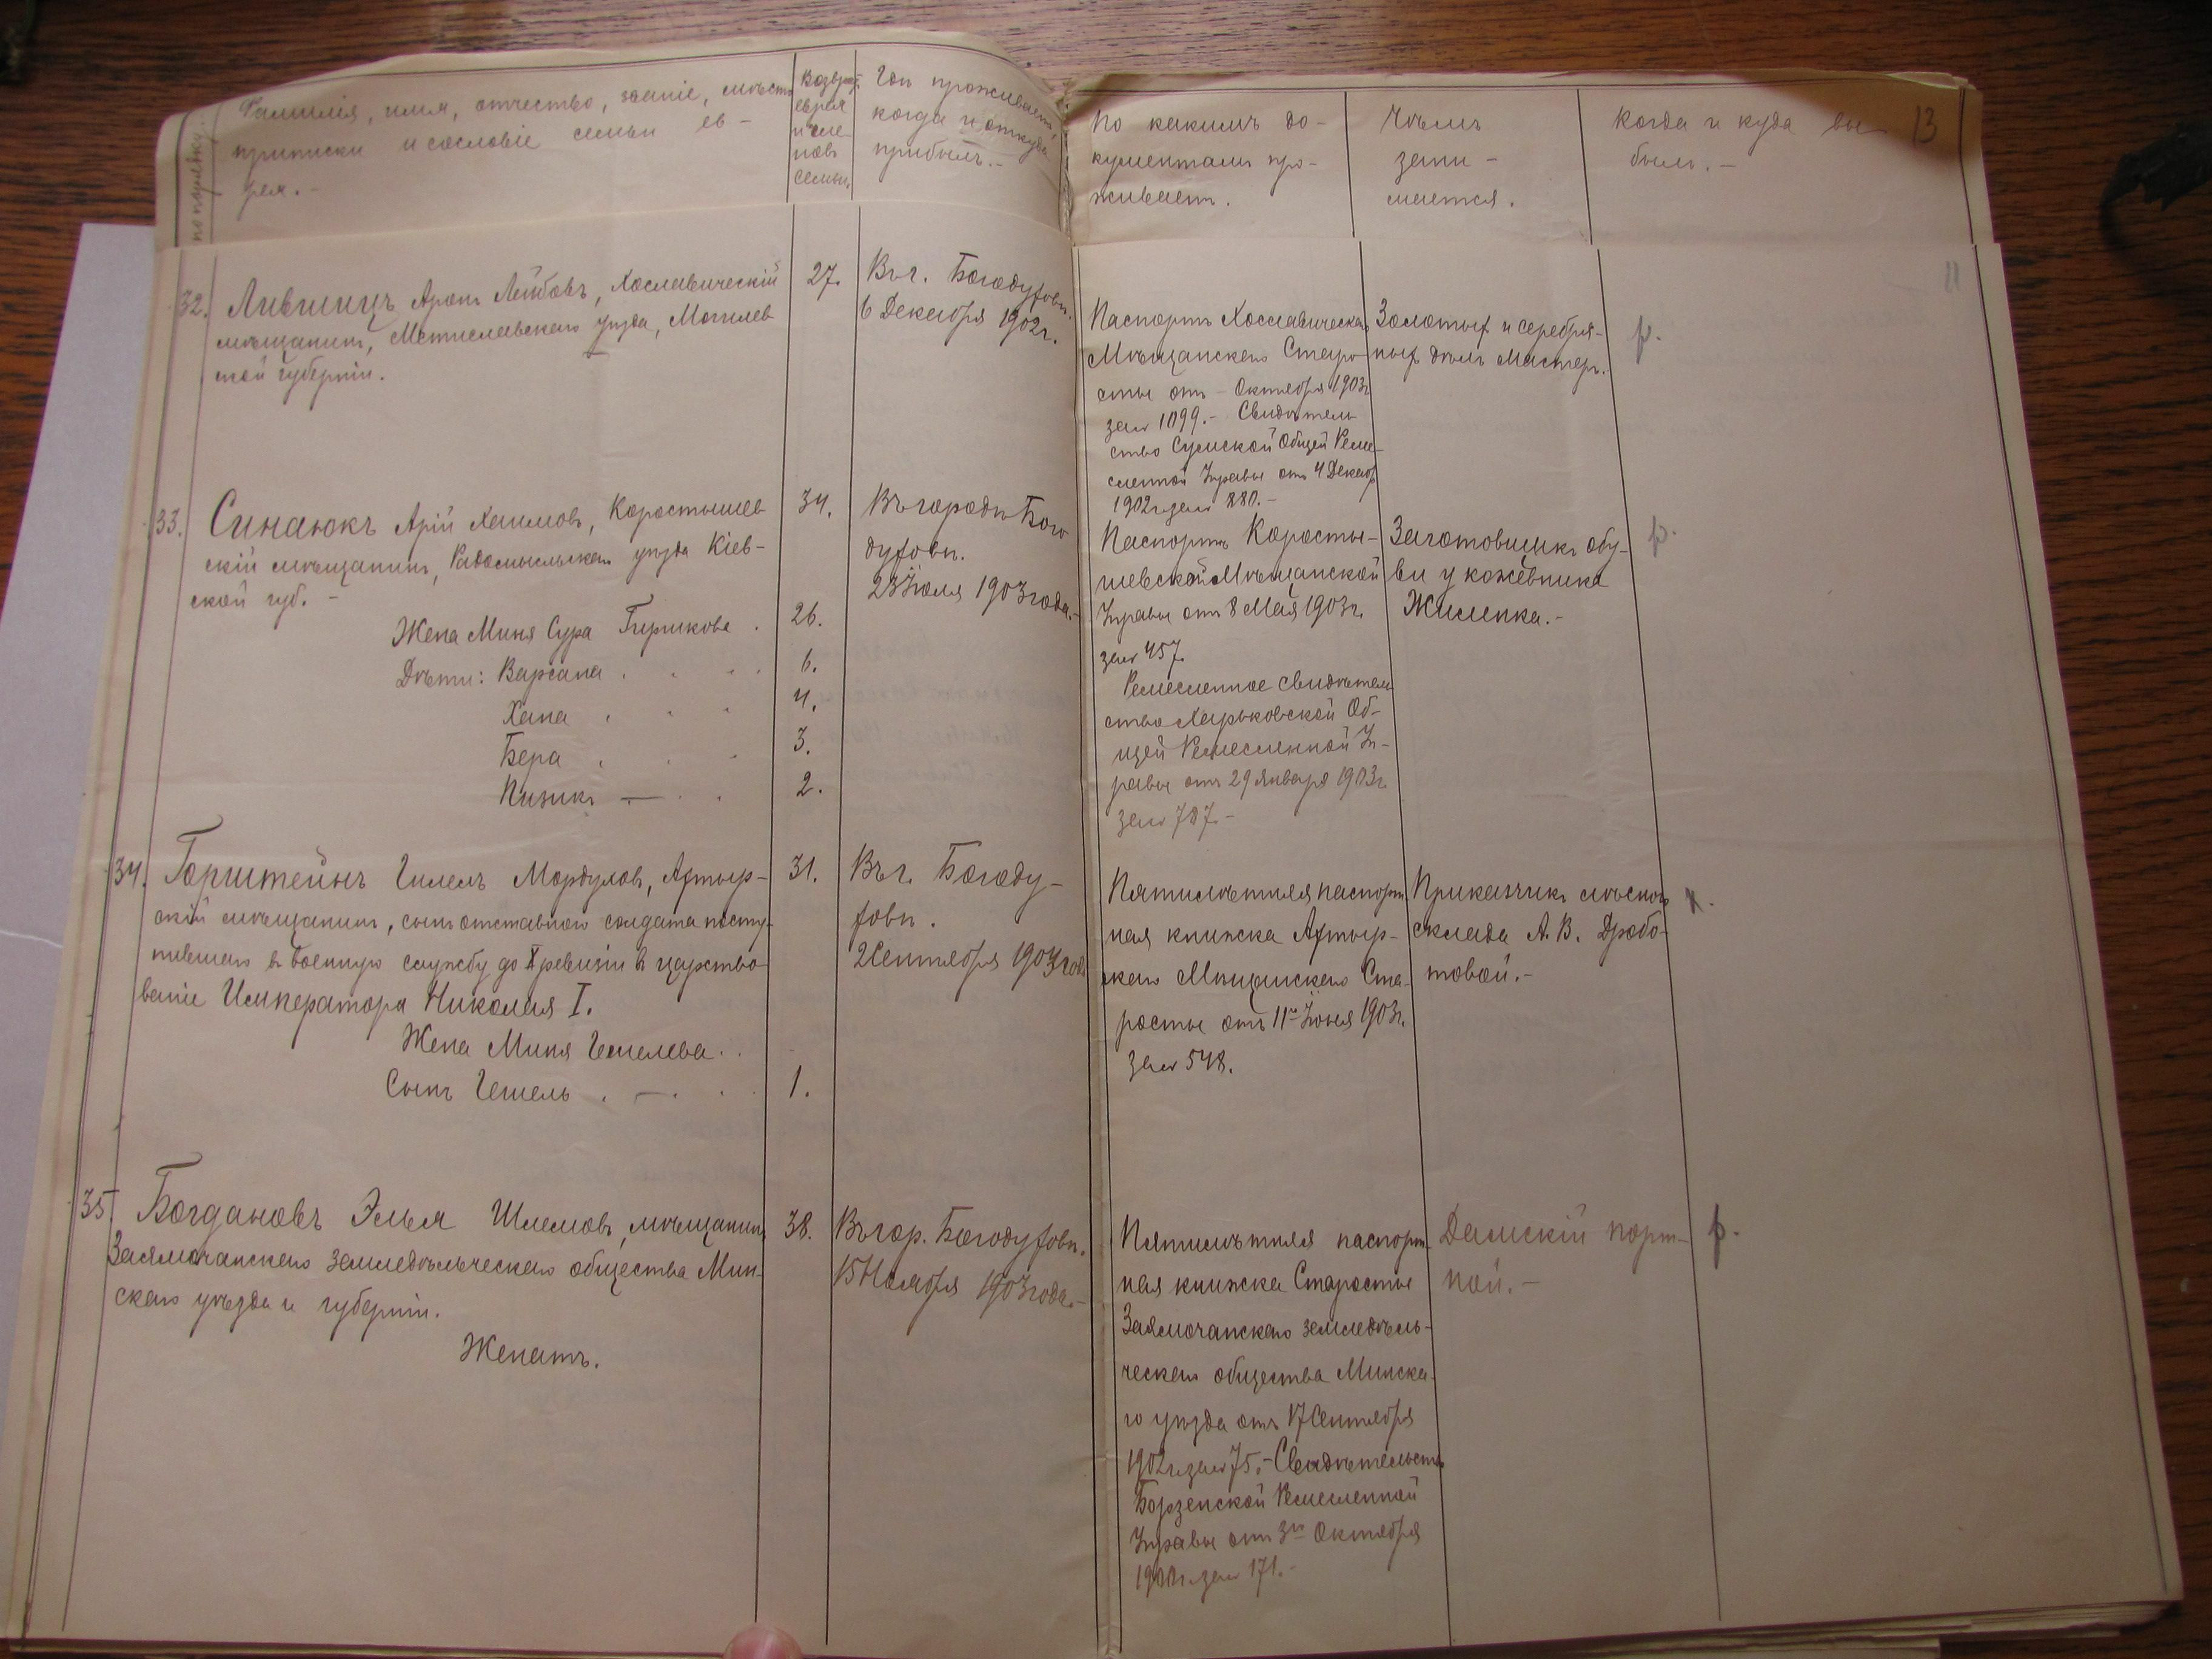 по порядку.
Фамилія, имя, отчество, званіе, мѣсто
приписки и сословіе семьи ев-
рея.-
Возраст
еврея
и чле-
новъ
семьи.
Гдѣ проживаетъ,
когда и откуда
прибылъ.-
По какимъ до-
кументамъ про-
живаетъ.
Чѣмъ
зани-
мается.
Когда и куда вы-
былъ.-
13
11
32. Лившицъ Аронъ Лейбовъ, Хославическій
мѣщанинъ, Мстиславскаго уѣзда, Могилев
ской губерніи.
27.
Въ г. Богодуховѣ.
6 Декабря 1902 г.
Паспортъ Хославическаго
Мѣщанскаго Старо-
сты отъ - Октября 1903г
за № 1099.- Свидѣтель
ство Сумской Общей Реме-
сленной Управы отъ 4 Декабр
1902 г. за № 880.-
Золотыхъ и серебря-
ныхъ дѣлъ мастеръ.
р.
33. Синаюкъ Арій Хаимовъ, Коростышев
скій мѣщанинъ, Радомысльскаго уѣзда Кіев-
ской губ. -
Жена Миня Сура Гиршкова .
Дѣти: Варсана . . . .
Хана . . .
Бера . . .
Пизикъ — . .
34.
26.
6.
4.
3.
2.
Въ городѣ Бого
духовѣ.
23 Іюля 1903 года.-
Паспортъ Коросты-
шевской Мѣщанской
Управы отъ 8 Мая 1903 г.
за № 457.
Ремесленное свидѣтель
ство Харьковской Об-
щей Ремесленной Уп-
равы отъ 29 Января 1903 г.
за № 787.-
Заготовщикъ обу-
ви у кожевника
Жилинка.-
р.
34. Горштейнъ Гилель Мордуховъ, Ахтыр-
скій мѣщанинъ, сынъ отставного солдата посту-
пившаго въ военную службу до X ревизіи въ царство-
ваніе Императора Николая I.
Жена Миня Гешелева . .
Сынъ Гешель . — . .
31.
1.
Въ г. Богоду-
ховѣ.
2 Сентября 1903 года
Пятилѣтняя паспорт
ная книжка Ахтыр-
скаго Мѣщанскаго Ста-
росты отъ 11го Іюня 1903 г.
за № 548.
Приказчикъ лѣсного
склада А. В. Дробо-
товой.-
35. Богдановъ Элья Шлемовъ, мѣщанинъ
Заямочанскаго земледѣльческаго общества Мин-
скаго уѣзда и губерніи.
Женатъ.
38.
Въ гор. Богодуховѣ.
15 Ноября 1903 года.-
Пятилѣтняя паспорт-
ная книжка Старосты
Заямочанскаго земледѣль-
ческаго общества Минска-
го уѣзда отъ 17 Сентября
1902 г. за № 75.- Свидѣтельство
Борзенской Ремесленной
Управы отъ 3го Октября
1900 г. за № 171.-
Дамскій порт-
ной.-
р.